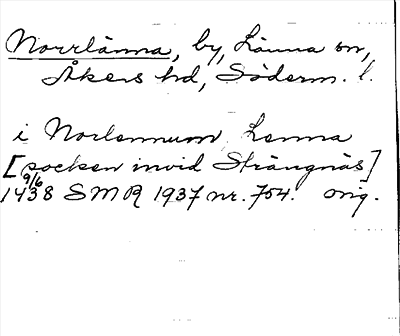 Norrlänna, by, Länna sn,
Åkers hd, Söderm. l.
i Norlennum Lenna
[socken invid Strängnäs]
9/6
1438 SMR 1937 nr. 754. orig.